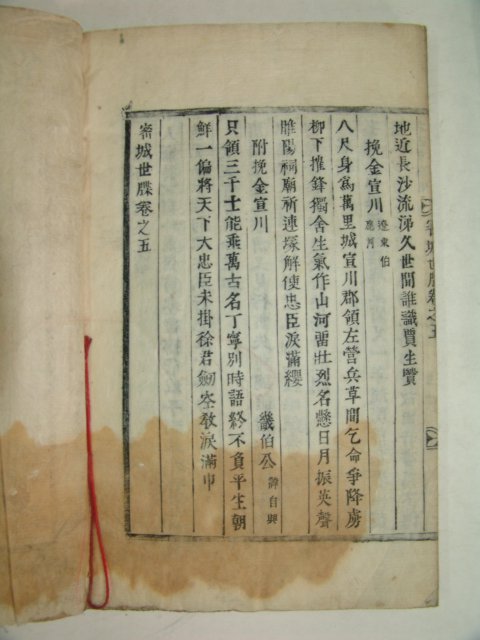 地近長沙流涕久世間誰識賈生贒
挽金宣川 遼東伯 應月
八尺身爲萬里城宣川郡領左營兵草間乞命爭降虜
柳下摧鋒獨舍生氣作山河雷壯烈名懸日月振英聲
睢陽祠廟祈連塚解使忠臣淚滿纓
附挽金宣川 畿伯公 諱自興
只領三千士能乘萬古名丁寧別時語終不負平生朝
鮮一偏將天下大忠臣未掛徐君劒空敎淚滿巾
密城世牒卷之五
密城世牒卷之五